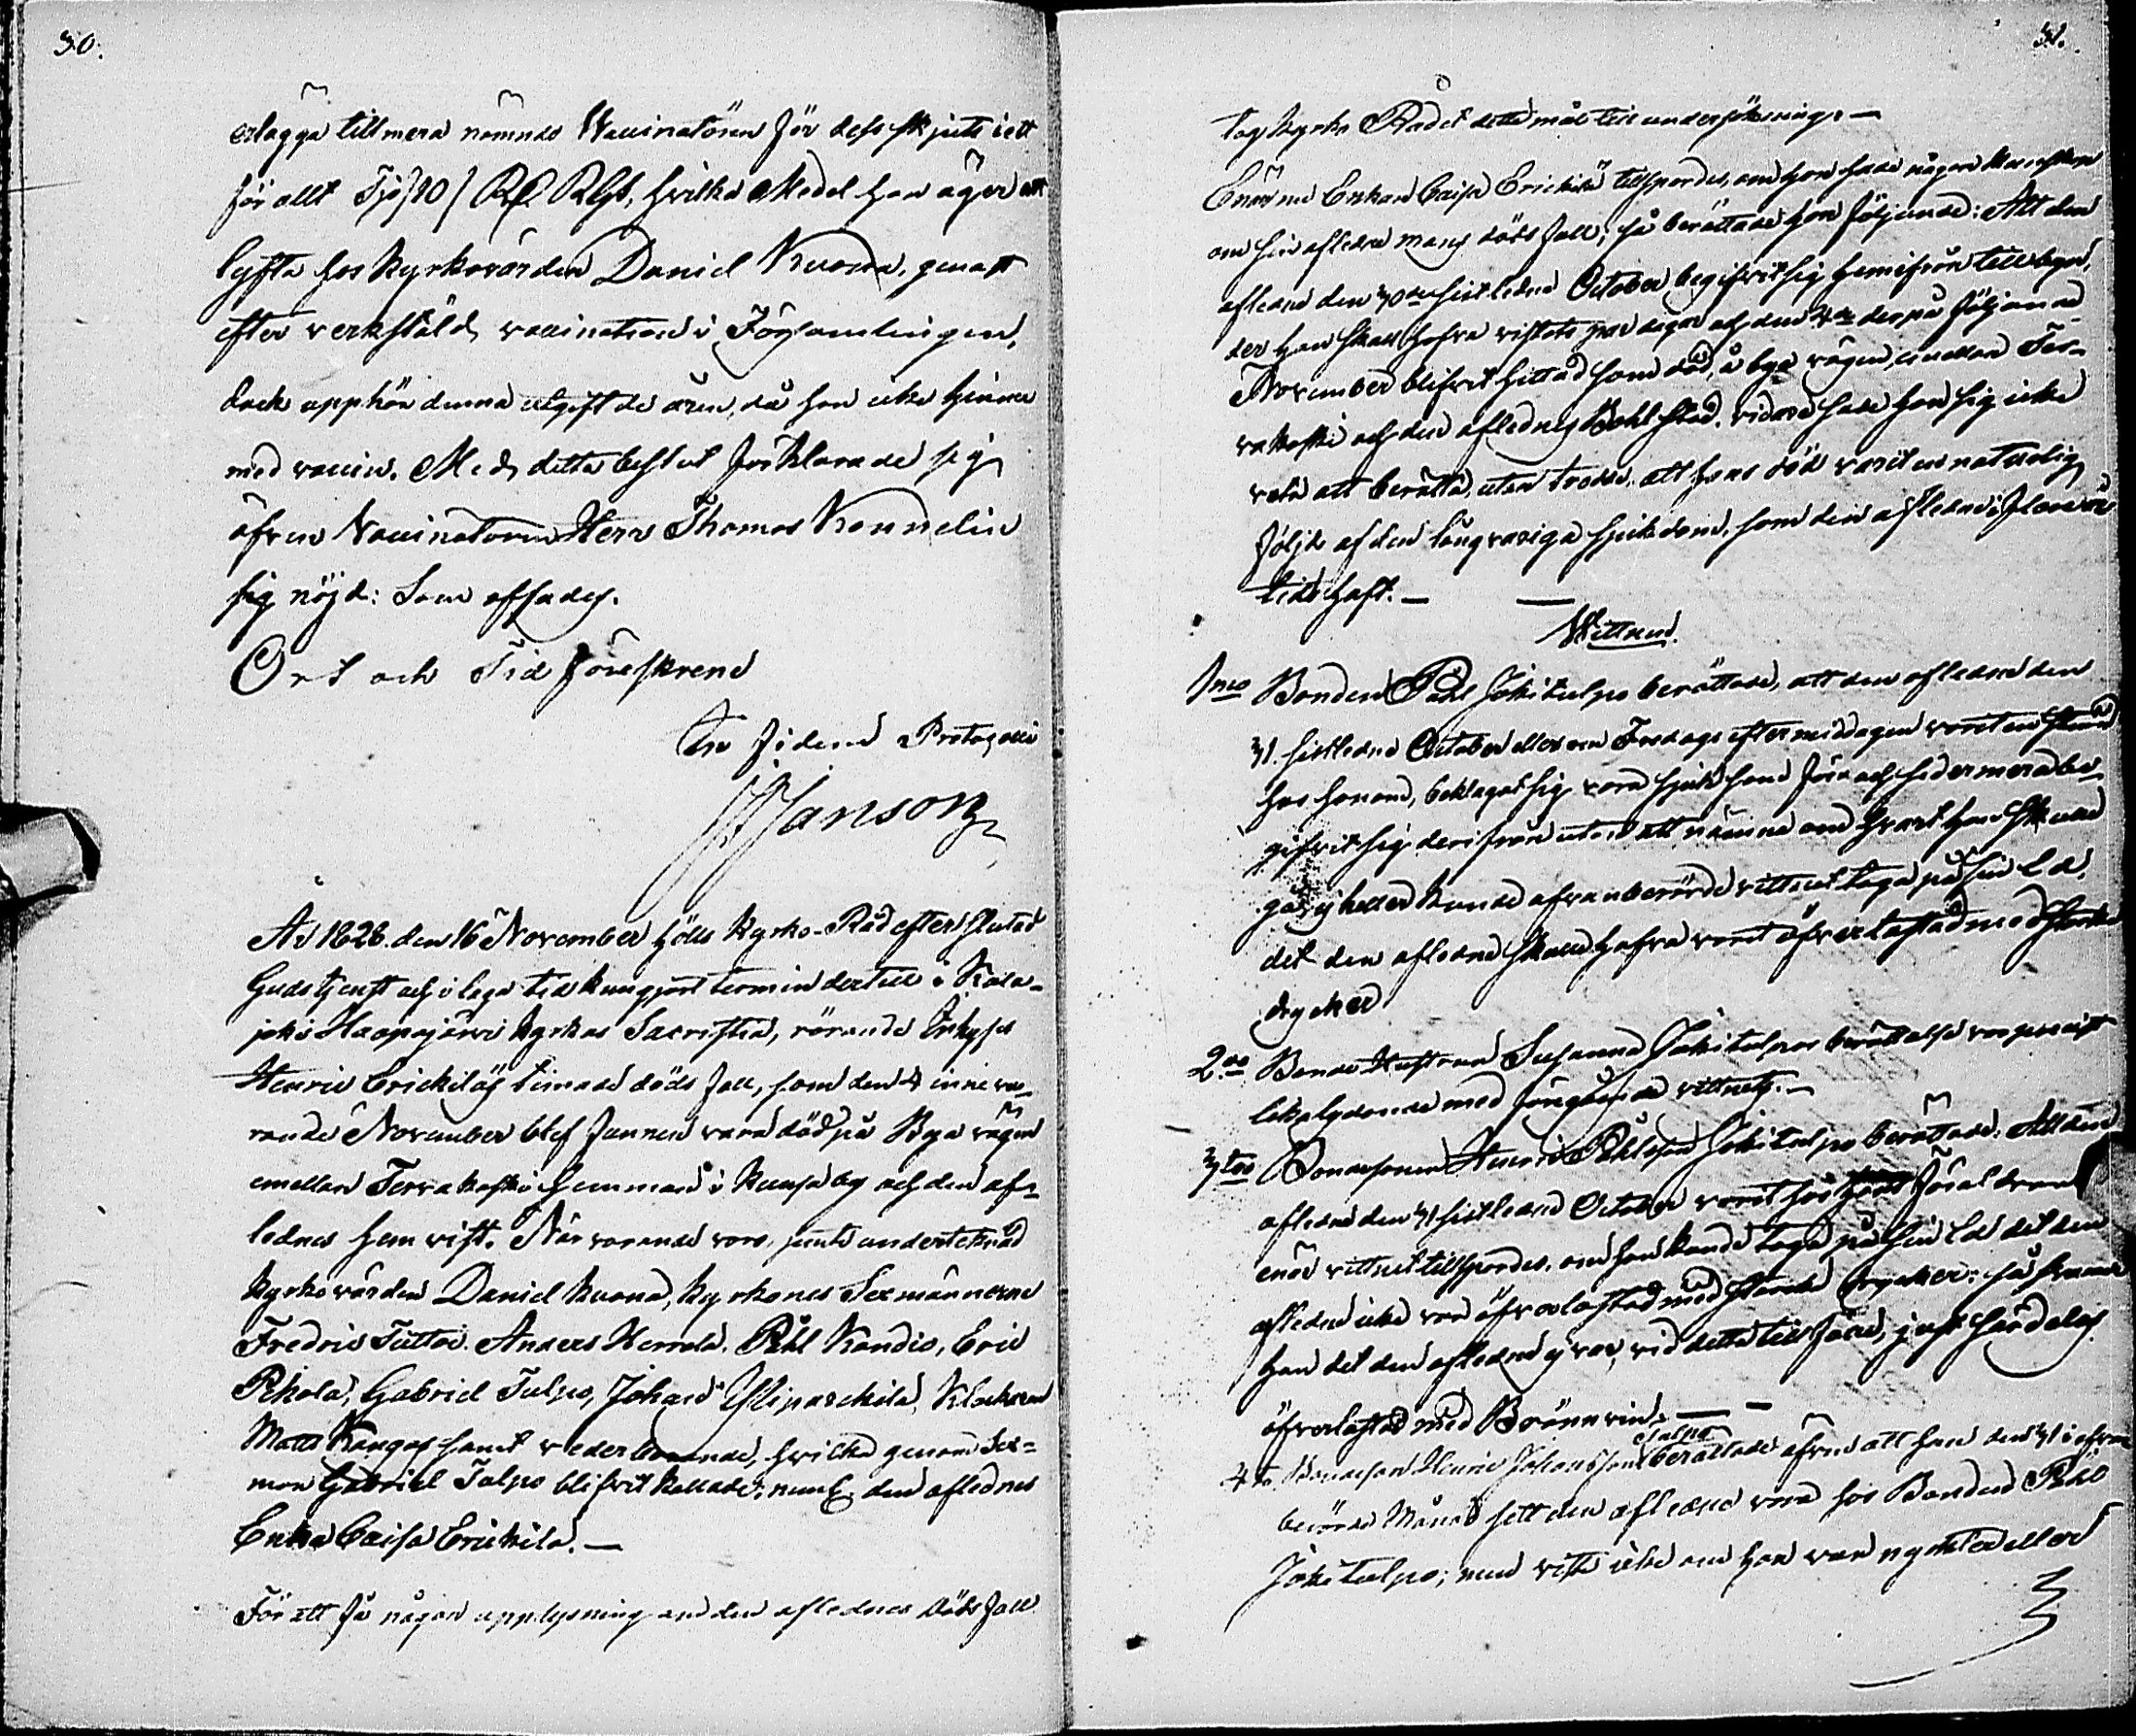 30.
erlägga till mera nämnde Vaccinatören för dess skjuts i ett
för allt Tjo /20/ Rd. Rgs, hvilka Medel han äger att
lyfta hos kyrkovärden Daniel Kuona, genast
efter verkstäld vaccination i Församlingen,
dock upphör denna utgift de åren, då han icke hinner
med vaccin. Med detta beslut förklarade sig
äfven Vaccinatoren Herr Thomas Konnelin
sig nöjd: Som affades.
Ort och Tid föreskrene
In fidem Protocolli
J Janson
År 1828. den 16 November hölls Kyrko-Råd efter slutad
Gudstjenst och i laga tid kungjord termin dertill i Kala-
joki Haapajärvi kyrkas Sacristia, rörande Inhyses
Henric Erickiläs timade döds fall, som den 4 inneva-
rande November blef funnen vara död på Bya vägen
emellan Tervakoski hemman i Kuusa by och den af-
lednes hemvist. Närvarande voro, jemte undertecknad
kyrkovärden Daniel Kuona, kyrkones Sexmännerne
Fredric Tuttoi. Anders Herrala. Påhl Kandio, Eric
Pihola, Gabriel Tulpo, Johan Ylipärckilä, Klockaren
Matts Kangas samt vederbörande, hvilka genom Sex=
man Gabriel Tulpo blifvit kallade; neml. den aflednes
Enka Caisa Erickilä. —
För att få någon upplysning om den aflednes döds fall
31.
tog Kyrko Rådet detta mål till undersökning. —
Enär nu Enkan Caisa Erickilä tillspordes, om hon hade någon kunskap
om sin afledne mans döds fall; så berättade hon följande: Att den
afledne den 30de sistledne October begifvit sig hemifrån till byn,
der han skall hafva vistats par dagar och den 4de derpå följande
November blifvit hittad som död, å bya vägen, emellan Ter-
vakoski och den aflednes Bohlstad. vidare sade hon sig icke
veta att berätta, utan trodde, att hans död varit en naturlig
följd af den långvariga sjukdom, som den afledne i flera års
tid haft. —
Vittnen.
1mo Bonden Påhl Jokitulpo berättade, att den afledne den
31 sistledne October eller om Fredags eftermiddagen varit en stund
hos honom, beklagat sig vara sjuk som förr och sedermera be-
gifvit sig derifrån utan att nämna om hvart han skulle
gå; ej heller kunde ofvanberörde vittnet taga på sin Ed.
det den afledne skulle hafva varit öfverlastad med starka
drycker
2do Bonde Hustrun Susanna Jokitulpos berättelse var precist
lika lydande med föregående vittnets. —
3tio Bondesonen Henric Påhlsson Jokitulpo berättade: Att den
afledne den 31 sistledne October varit hos hans Föräldrar
enär vittnet tillspordes, om han kunde taga på sin Ed det den
afledne icke var öfverlastad med starka drycker: så svarade
han det den afledne ej var, vid detta tillfälle, just särdeles
öfverlastad med Brännvin. —
4to Bondeson Henric Johansson Tulpo berättade äfven att han den 31 i ofvan
berörde Månad sett den afledne vara hos Bonden Påhl
Jokitulpo; men visste icke om han var nykter eller